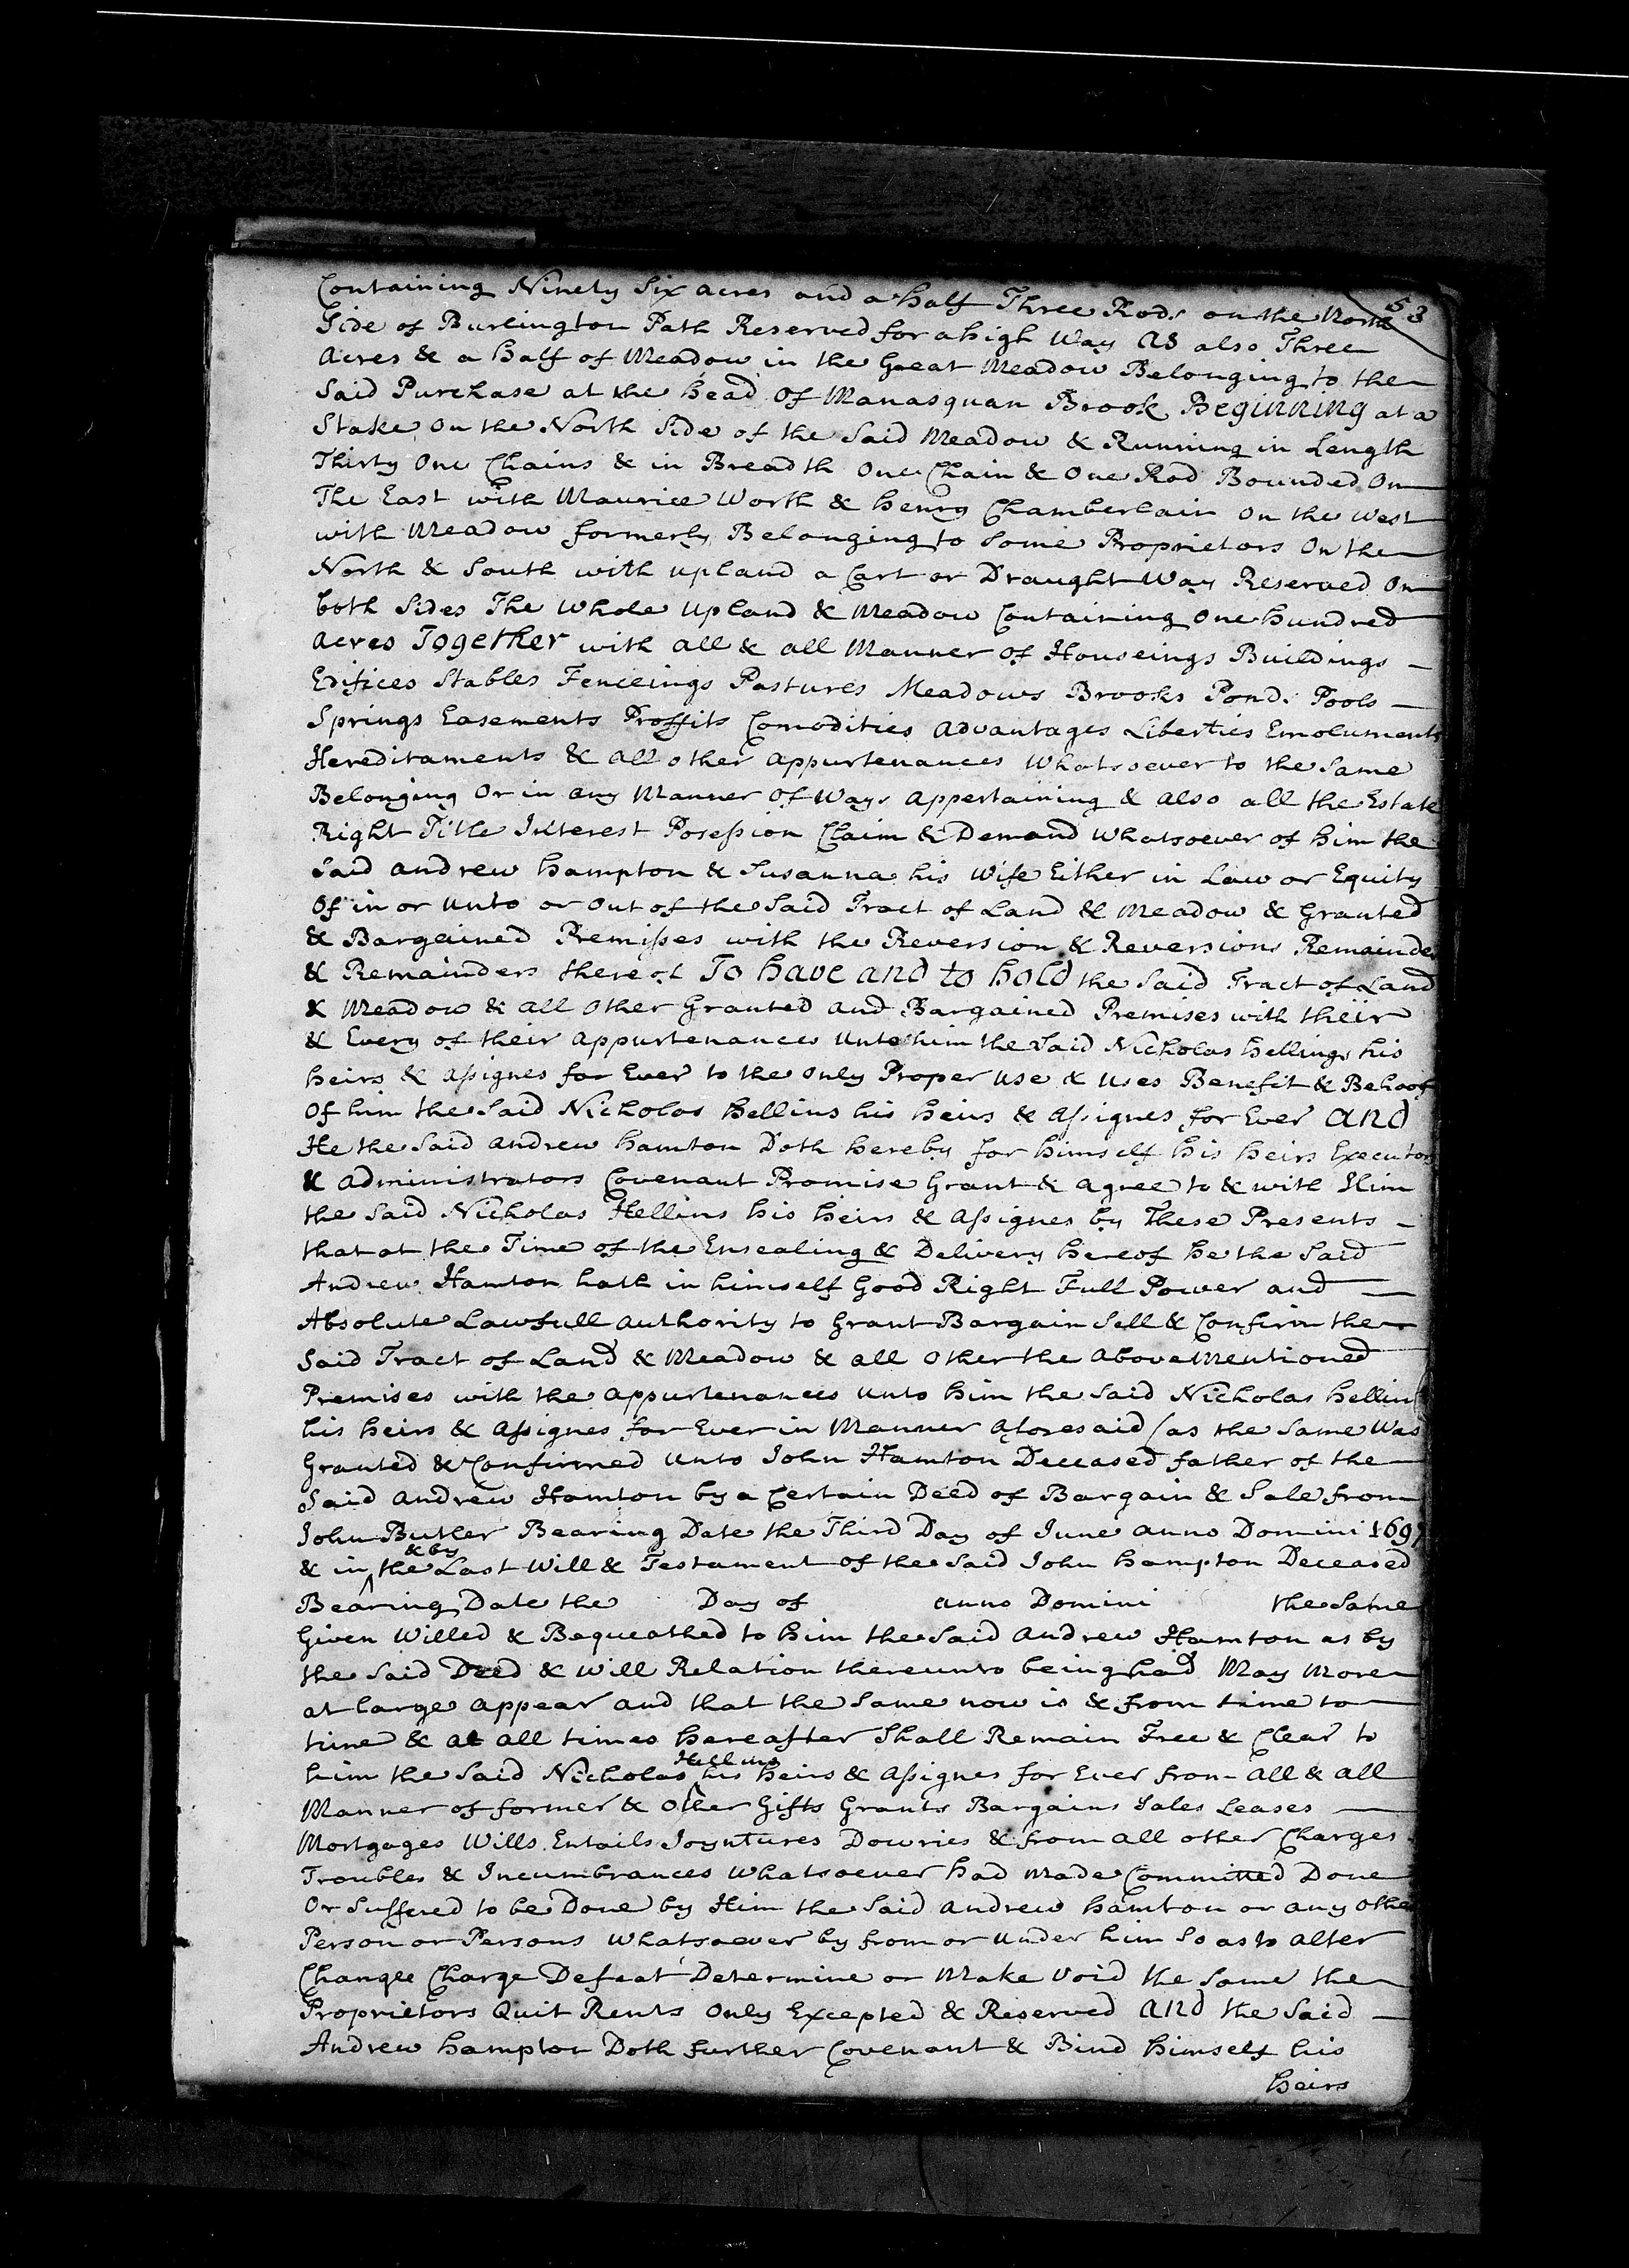 53
Containing Ninety Six acres and a half Three Rods on the North
Side of Burlington Path Reserved for a high Way As also Three
Acres & a half of Meadow in the Great Meadow Belonging to the
Said Purchase at the head Of Manasquan Brook Beginning at a
Stake On the North Side of the Said Meadow & Running in Length
Thirty One Chains & in Breadth One Chain & One Rod Bounded On
The East with Maurice Worth & henry Chamberlain On the West
with Meadow formerly Belonging to Some Proprietors On the
North & South with upland a Cart or Draught Way Reserved On
both Sides The Whole Upland & Meadow Containing One hundred
Acres Together with all & all Manner of Houseings Buildings
Edifices Stables Fenceings Pastures Meadows Brooks Ponds Pools
Springs Easements Proffits Comodities Advantages Liberties Emoluments
Hereditaments & all other appurtenances Whatsoever to the Same
Belonging Or in any Manner Of Ways Appertaining & also all the Estate
Right Title Interest Posession Claim & Demand Whatsoever of him the
Said Andrew hampton & Susanna his Wife Either in Law or Equity
Of in or Unto or Out of the Said Tract of Land & Meadow & Granted
& Bargained Premisses with the Reversion & Reversions Remainder
& Remainders thereof To have and to hold the Said Tract of Land
& Meadow & all Other Granted and Bargained Premises with their
& Every of their Appurtenances Unto him the Said Nicholas hellings his
heirs & Assignes for Ever to the Only Proper Use & Uses Benefit & Behoof
Of him the Said Nicholas hellins his heirs & Assignes for Ever And
He the Said Andrew hamton Doth hereby for himself his heirs Executors
& Administrators Covenant Promise Grant & Agree to & with Him
the Said Nicholas Hellins his heirs & Assignes by These Presents
that at the Time of the Ensealing & Delivery hereof he the Said
Andrew Hamton hath in himself Good Right Full Power and
Absolute Lawfull Authority to Grant Bargain Sell & Confirm the
Said Tract of Land & Meadow & all Other the Above Mentioned
Premises with the Appurtenances Unto him the Said Nicholas hellins
his heirs & Assignes for Ever in Manner Aforesaid (as the Same Was
Granted & Confirmed Unto John Hamton Deceased father of the
Said Andrew Hamton by a Certain Deed of Bargain & Sale from
John Butler Bearing Date the Third Day of June Anno Domini 1697
& in & by the Last Will & Testament of the Said John hampton Deceased
Bearing Date the Day of Anno Domini the Same
Given Willed & Bequeathed to him the Said Andrew Hamton as by
the Said Deed & Will Relation thereunto being had May More
at large Appear and that the Same now is & from time to
time & at all times hereafter Shall Remain Free & Clear to
him the Said Nicholas Hellins his heirs & Assignes for Ever from all & all
Manner of former & Other Gifts Grants Bargains Sales Leases
Mortgages Wills Entails Joyntures Dowries & from all other Charges
Troubles & Incumbrances Whatsoever had Made Committed Done
Or Suffered to be Done by Him the Said Andrew hamton or any Other
Person or Persons Whatsoever by from or Under him So as to alter
Change Charge Defeat Determine or Make Void the Same the
Proprietors Quit Rents Only Excepted & Reserved And the Said
Andrew hampton Doth further Covenant & Bind himself his
heirs